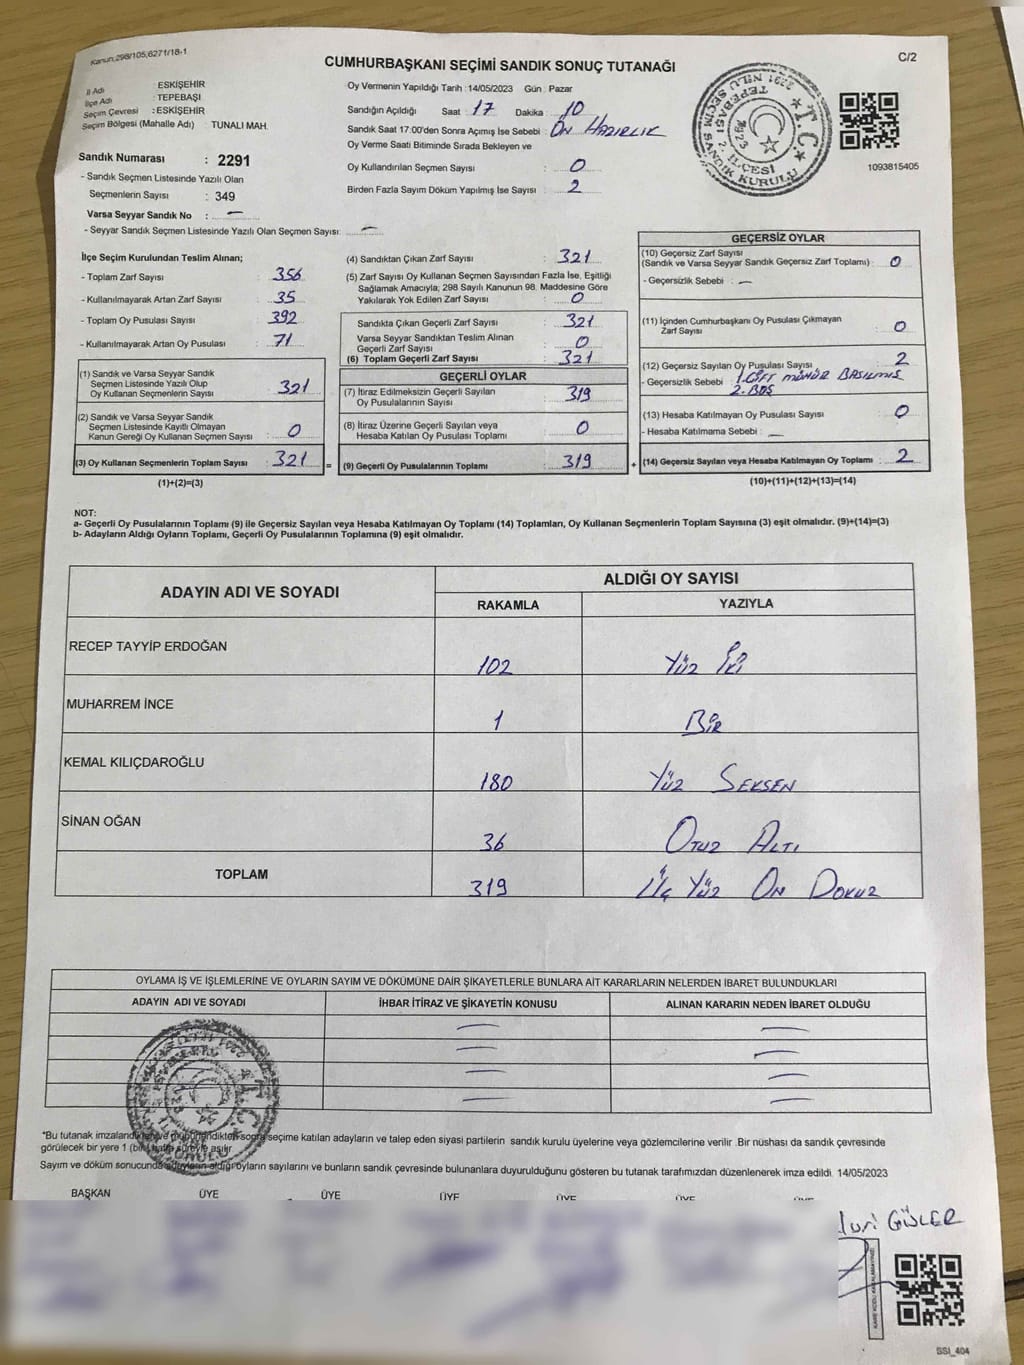 Kanun;298/105,6271/18-1
CUMHURBAŞKANI SEÇİMİ SANDIK SONUÇ TUTANAĞI
C/2
İl Adı : ESKİŞEHİR
İlçe Adı : TEPEBAŞI
Seçim Çevresi : ESKİŞEHİR
Seçim Bölgesi (Mahalle Adı) : TUNALI MAH.
Sandık Numarası : 2291
- Sandık Seçmen Listesinde Yazılı Olan
Seçmenlerin Sayısı : 349
Varsa Seyyar Sandık No : —
- Seyyar Sandık Seçmen Listesinde Yazılı Olan Seçmen Sayısı: —
Oy Vermenin Yapıldığı Tarih : 14/05/2023 Gün : Pazar
Sandığın Açıldığı Saat : 17 Dakika : 10
Sandık Saat 17:00'den Sonra Açımış İse Sebebi : ÖN HAZIRLIK
Oy Verme Saati Bitiminde Sırada Bekleyen ve
Oy Kullandırılan Seçmen Sayısı : 0
Birden Fazla Sayım Döküm Yapılmış İse Sayısı : 2
T.C.
TEPEBAŞI 2. İLÇESİ
2291 NOLU SEÇİM SANDIK KURULU
1923
1093815405
İlçe Seçim Kurulundan Teslim Alınan;
- Toplam Zarf Sayısı : 356
- Kullanılmayarak Artan Zarf Sayısı : 35
- Toplam Oy Pusulası Sayısı : 392
- Kullanılmayarak Artan Oy Pusulası : 71
(1) Sandık ve Varsa Seyyar Sandık
Seçmen Listesinde Yazılı Olup
Oy Kullanan Seçmenlerin Sayısı : 321
(2) Sandık ve Varsa Seyyar Sandık
Seçmen Listesinde Kayıtlı Olmayan
Kanun Gereği Oy Kullanan Seçmen Sayısı : 0
(3) Oy Kullanan Seçmenlerin Toplam Sayısı : 321
(1)+(2)=(3)
(4) Sandıktan Çıkan Zarf Sayısı : 321
(5) Zarf Sayısı Oy Kullanan Seçmen Sayısından Fazla İse, Eşitliği
Sağlamak Amacıyla; 298 Sayılı Kanunun 98. Maddesine Göre
Yakılarak Yok Edilen Zarf Sayısı : 0
Sandıkta Çıkan Geçerli Zarf Sayısı : 321
Varsa Seyyar Sandıktan Teslim Alınan
Geçerli Zarf Sayısı : 0
(6) Toplam Geçerli Zarf Sayısı : 321
GEÇERLİ OYLAR
(7) İtiraz Edilmeksizin Geçerli Sayılan
Oy Pusulalarının Sayısı : 319
(8) İtiraz Üzerine Geçerli Sayılan veya
Hesaba Katılan Oy Pusulası Toplamı : 0
= (9) Geçerli Oy Pusulalarının Toplamı : 319 +
GEÇERSİZ OYLAR
(10) Geçersiz Zarf Sayısı
(Sandık ve Varsa Seyyar Sandık Geçersiz Zarf Toplamı) : 0
- Geçersizlik Sebebi : —
(11) İçinden Cumhurbaşkanı Oy Pusulası Çıkmayan
Zarf Sayısı : 0
(12) Geçersiz Sayılan Oy Pusulası Sayısı : 2
- Geçersizlik Sebebi : 1. ÇİFT MÜHÜR BASILMIŞ
2. BOŞ
(13) Hesaba Katılmayan Oy Pusulası Sayısı : 0
- Hesaba Katılmama Sebebi : —
(14) Geçersiz Sayılan veya Hesaba Katılmayan Oy Toplamı : 2
(10)+(11)+(12)+(13)=(14)
NOT:
a- Geçerli Oy Pusulalarının Toplamı (9) ile Geçersiz Sayılan veya Hesaba Katılmayan Oy Toplamı (14) Toplamları, Oy Kullanan Seçmenlerin Toplam Sayısına (3) eşit olmalıdır. (9)+(14)=(3)
b- Adayların Aldığı Oyların Toplamı, Geçerli Oy Pusulalarının Toplamına (9) eşit olmalıdır.
ADAYIN ADI VE SOYADI
ALDIĞI OY SAYISI
RAKAMLA YAZIYLA
RECEP TAYYİP ERDOĞAN 102 Yüz İki
MUHARREM İNCE 1 Bir
KEMAL KILIÇDAROĞLU 180 Yüz Seksen
SİNAN OĞAN 36 Otuz Altı
TOPLAM 319 Üç Yüz On Dokuz
OYLAMA İŞ VE İŞLEMLERİNE VE OYLARIN SAYIM VE DÖKÜMÜNE DAİR ŞİKAYETLERLE BUNLARA AİT KARARLARIN NELERDEN İBARET BULUNDUKLARI
ADAYIN ADI VE SOYADI İHBAR İTİRAZ VE ŞİKAYETİN KONUSU ALINAN KARARIN NEDEN İBARET OLDUĞU
*Bu tutanak imzalandıktan ve mühürlendikten sonra seçime katılan adayların ve talep eden siyasi partilerin sandık kurulu üyelerine veya gözlemcilerine verilir .Bir nüshası da sandık çevresinde
görülecek bir yere 1 (bir) hafta süreyle asılır.
Sayım ve döküm sonucunda adayların aldığı oyların sayılarını ve bunların sandık çevresinde bulunanlara duyurulduğunu gösteren bu tutanak tarafımızdan düzenlenerek imza edildi. 14/05/2023
BAŞKAN ÜYE ÜYE ÜYE ÜYE ÜYE ÜYE
GÜLER
SSI_404